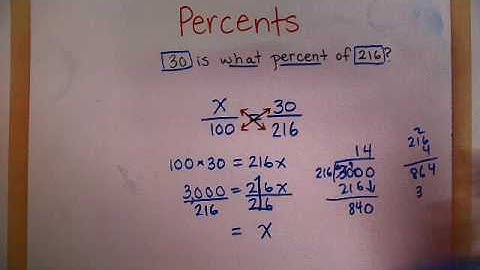 Percents
30 is what percent of 216?
x/100 = 30/216
100 × 30 = 216x
3000/216 = 216x/216
= x
14
216 3000
216
840
2
216
4
864
3